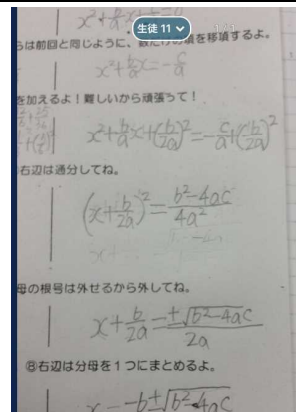 x²+b/a x+c/a=0
生徒 11 ∨
1/21
らは前回と同じように、数だけの項を移項するよ。
x²+b/a x=-c/a
を加えるよ！難しいから頑張って！
x²+b/a x+(b/2a)²=-c/a+(b/2a)²
右辺は通分してね。
(x+b/2a)²=b²-4ac/4a²
母の根号は外せるから外してね。
x+b/2a=±√b²-4ac/2a
⑧右辺は分母を１つにまとめるよ。
x=-b±√b²-4ac